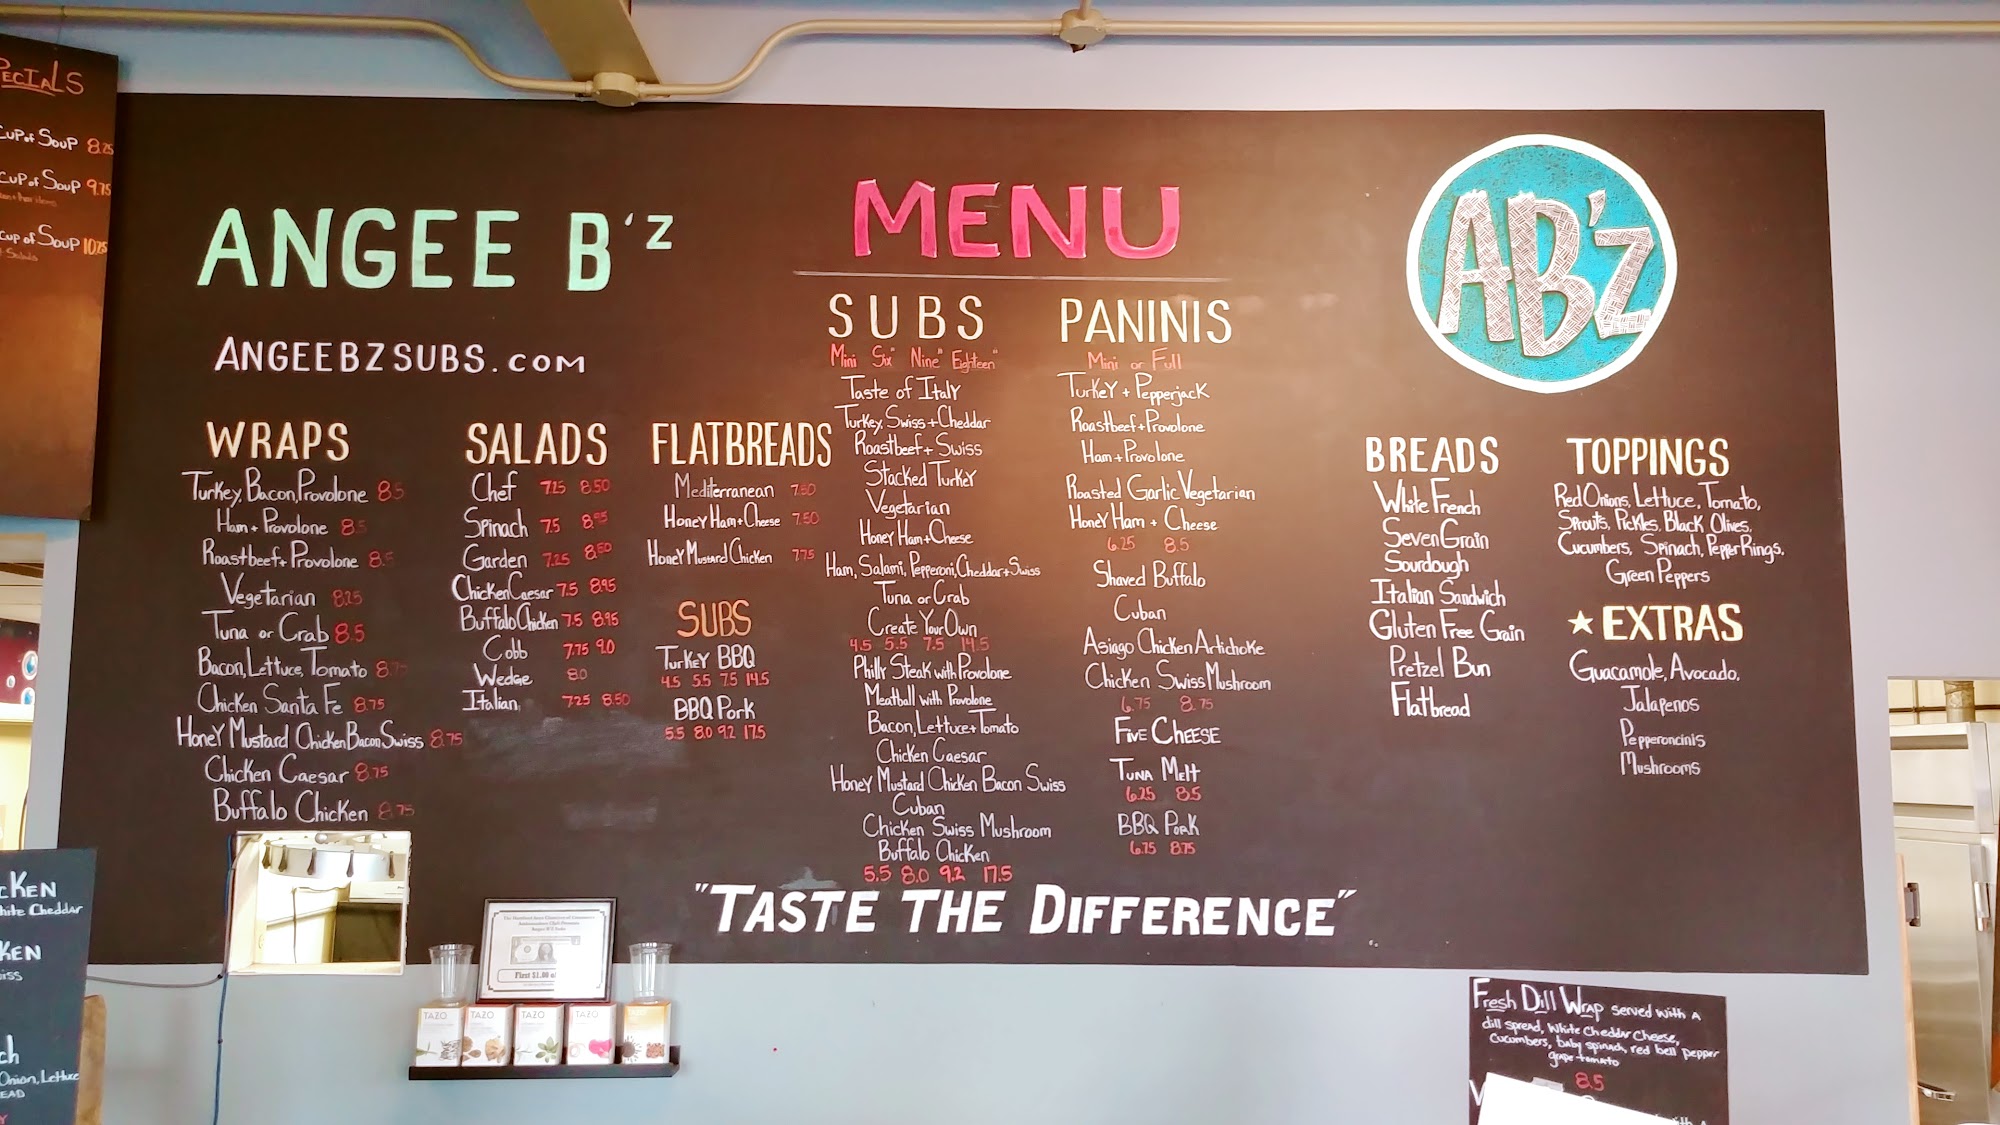 SPECIALS
Cup of Soup 8.25
Cup of Soup 9.75
Cup of Soup 10.75
Salads
ANGEE B'Z
ANGEEBZSUBS.COM
MENU
AB'z
WRAPS
Turkey, Bacon, Provolone 8.5
Ham + Provolone 8.5
Roastbeef + Provolone 8.5
Vegetarian 8.25
Tuna or Crab 8.5
Bacon, Lettuce, Tomato 8.75
Chicken Santa Fe 8.75
Honey Mustard Chicken Bacon Swiss 8.75
Chicken Caesar 8.75
Buffalo Chicken 8.75
SALADS
Chef 7.25 8.50
Spinach 7.5 8.95
Garden 7.25 8.50
Chicken Caesar 7.5 8.95
Buffalo Chicken 7.5 8.95
Cobb 7.75 9.0
Wedge 8.0
Italian 7.25 8.50
FLATBREADS
Mediterranean 7.50
Honey Ham + Cheese 7.50
Honey Mustard Chicken 7.75
SUBS
Turkey BBQ
4.5 5.5 7.5 14.5
BBQ Pork
5.5 8.0 9.2 17.5
SUBS
Mini Six" Nine" Eighteen"
Taste of Italy
Turkey, Swiss + Cheddar
Roastbeef + Swiss
Stacked Turkey
Vegetarian
Honey Ham + Cheese
Ham, Salami, Pepperoni, Cheddar + Swiss
Tuna or Crab
Create Your Own
4.5 5.5 7.5 14.5
Philly Steak with Provolone
Meatball with Provolone
Bacon, Lettuce + Tomato
Chicken Caesar
Honey Mustard Chicken Bacon Swiss
Cuban
Chicken Swiss Mushroom
Buffalo Chicken
5.5 8.0 9.2 17.5
PANINIS
Mini or Full
Turkey + Pepperjack
Roastbeef + Provolone
Ham + Provolone
Roasted Garlic Vegetarian
Honey Ham + Cheese
6.25 8.5
Shaved Buffalo
Cuban
Asiago Chicken Artichoke
Chicken Swiss Mushroom
6.75 8.75
Five Cheese
Tuna Melt
6.25 8.5
BBQ Pork
6.75 8.75
BREADS
White French
Seven Grain
Sourdough
Italian Sandwich
Gluten Free Grain
Pretzel Bun
Flatbread
TOPPINGS
Red Onions, Lettuce, Tomato,
Sprouts, Pickles, Black Olives,
Cucumbers, Spinach, Pepper Rings,
Green Peppers
★ EXTRAS
Guacamole, Avocado,
Jalapenos
Pepperoncinis
Mushrooms
"TASTE THE DIFFERENCE"
CKEN
White Cheddar
KEN
Onion, Lettuce
First $1.00
TAZO TAZO TAZO TAZO TAZO
Fresh Dill Wrap served with a
dill spread, white cheddar cheese,
cucumbers, baby spinach, red bell pepper
grape tomato
8.5
with a